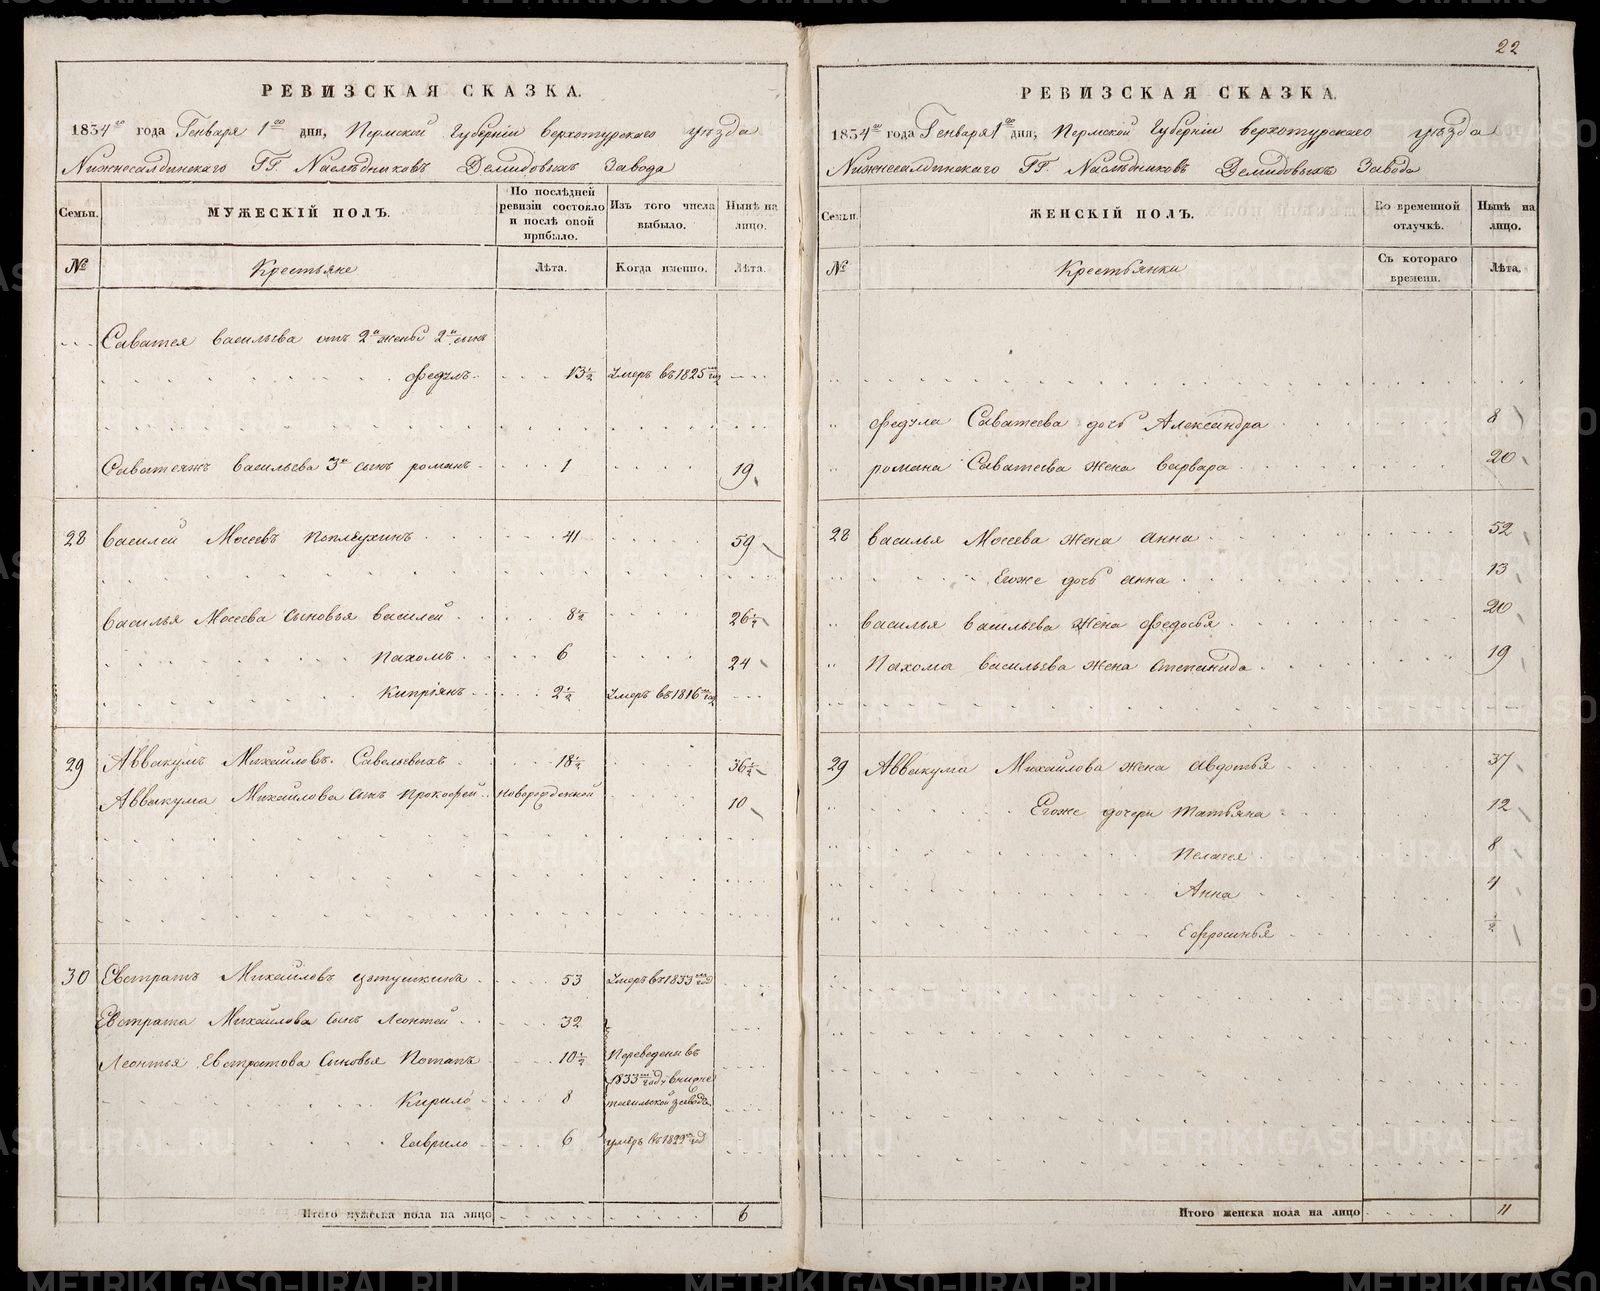 22
РЕВИЗСКАЯ СКАЗКА.
1834го года Генваря 1го дня, Пермской Губернiи верхотурскаго уѣзда
Нижнесалдинскаго ГГ. Наслѣдниковъ Демидовыхъ Завода
Семьи. МУЖЕСКIЙ ПОЛЪ. По послѣдней ревизiи состояло и послѣ оной прибыло. Изъ того числа выбыло. Нынѣ на лицо.
№ Крестьяне Лѣта. Когда именно. Лѣта.
Саватея васильева отъ 2й жены 2й сынъ
федулъ 13½ Умеръ въ 1825мъ году
Саватеяжъ васильева 3й сынъ романъ 1 19
28 василей Мосеевъ 41 59
василья Мосеева сыновья василей 8½ 26½
Пахомъ 6 24
Кипрiянъ 2½ Умеръ въ 1816мъ году
29 Аввакумъ Михайловъ Савельевыхъ 18½ 36½
Аввакума Михайлова сынъ Прокофей новорожденной 10
30 Евстратъ Михайловъ 53 Умеръ въ 1833мъ году
Евстрата Михайлова сынъ Леонтей 32
Леонтья Евстратова сыновья Потапъ 10½ Переведены въ
1833мъ году в нижне
Кирило 8 тагильской заводъ
Гаврило 6 умеръ въ 1829м год
Итого мужеска пола на лицо 6
РЕВИЗСКАЯ СКАЗКА.
1834го года Генваря 1го дня, Пермской Губернiи верхотурскаго уѣзда
Нижнесалдинскаго ГГ. Наслѣдниковъ Демидовыхъ Завода
Семьи. ЖЕНСКIЙ ПОЛЪ. Во временной отлучкѣ. Нынѣ на лицо.
№ Крестьянки Съ котораго времени. Лѣта.
федула Саватеева дочь Александра 8
романа Саватеева жена варвара 20
28 василья Мосеева жена анна 52
Егоже дочь анна 13
василья васильева жена федосья 20
Пахома васильева жена степанида 19
29 Аввакума Михайлова жена авдотья 37
Егоже дочери татьяна 12
Пелагея 8
Анна 4
Ефросинья ½
Итого женска пола на лицо 11
METRIKI.GASO-URAL.RU